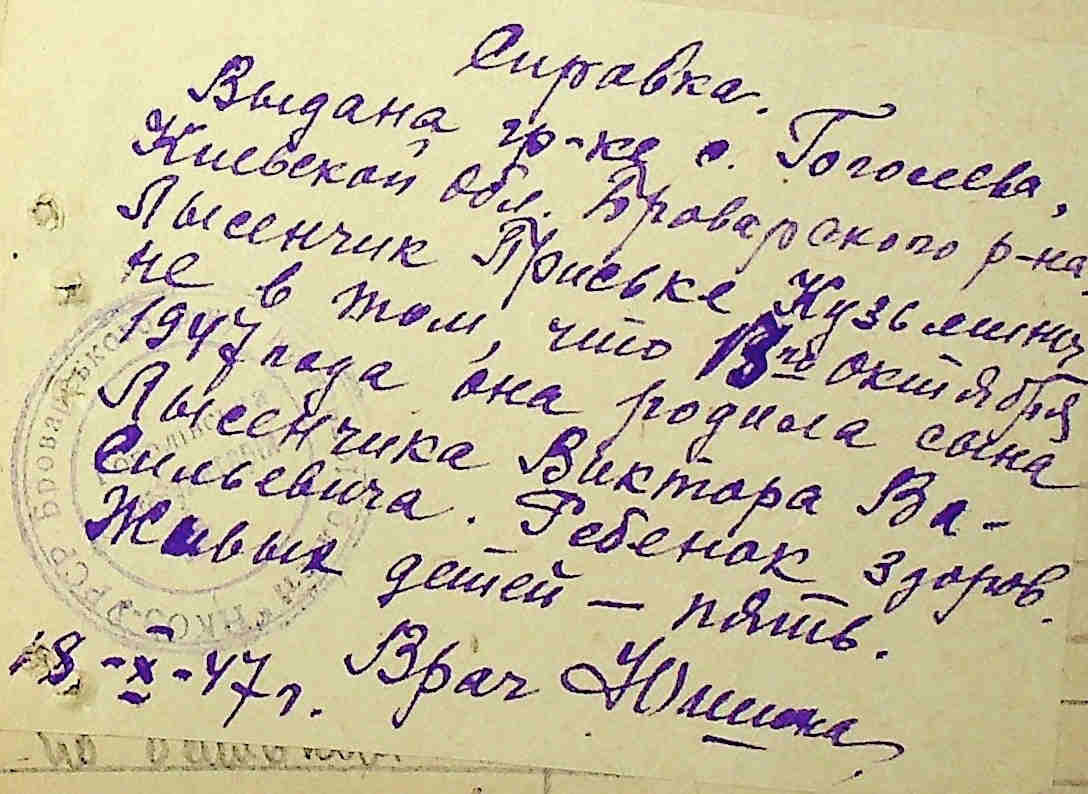 Справка.
Выдана гр-ке с. Гоголева,
Киевской обл. Броварского р-на
Лысенчик Приське Кузьминич
не в том, что 13го октября
1947 года она родила сына
Лысенчика Виктора Ва-
сильевича. Ребенок здоров.
Живых детей — пять.
18-X-47 г. Врач